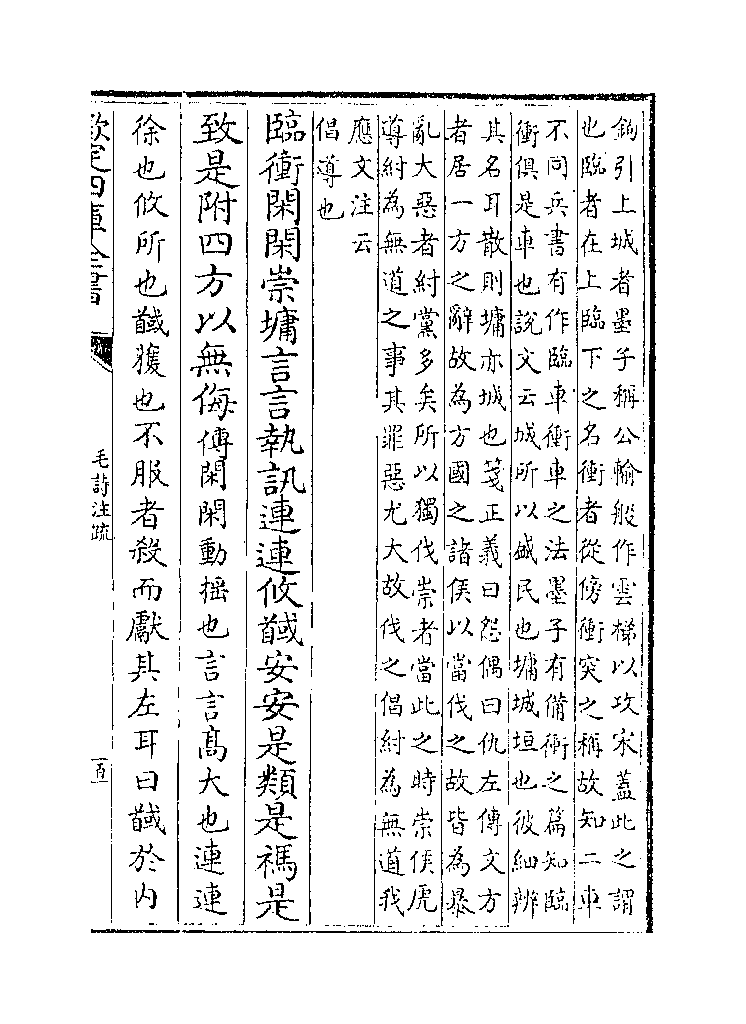 鉤引上城者墨子稱公輸般作雲梯以攻宋蓋此之謂
也臨者在上臨下之名衝者從傍衝突之稱故知二車
不同兵書有作臨車衝車之法墨子有備衝之篇知臨
衝俱是車也說文云城所以盛民也墉城垣也彼細辨
其名耳散則墉亦城也箋正義曰怨偶曰仇左傳文方
者居一方之辭故為方國之諸侯以當伐之故皆為暴
亂大惡者紂黨多矣所以獨伐崇者當此之時崇侯虎
導紂為無道之事其罪惡尤大故伐之倡紂為無道我
應文注云
倡導也
臨衝閑閑崇墉言言執訊連連攸馘安安是類是禡是
致是附四方以無侮傳閑閑動揺也言言髙大也連連
徐也攸所也馘獲也不服者殺而獻其左耳曰馘於内
欽定四庫全書
毛詩注疏